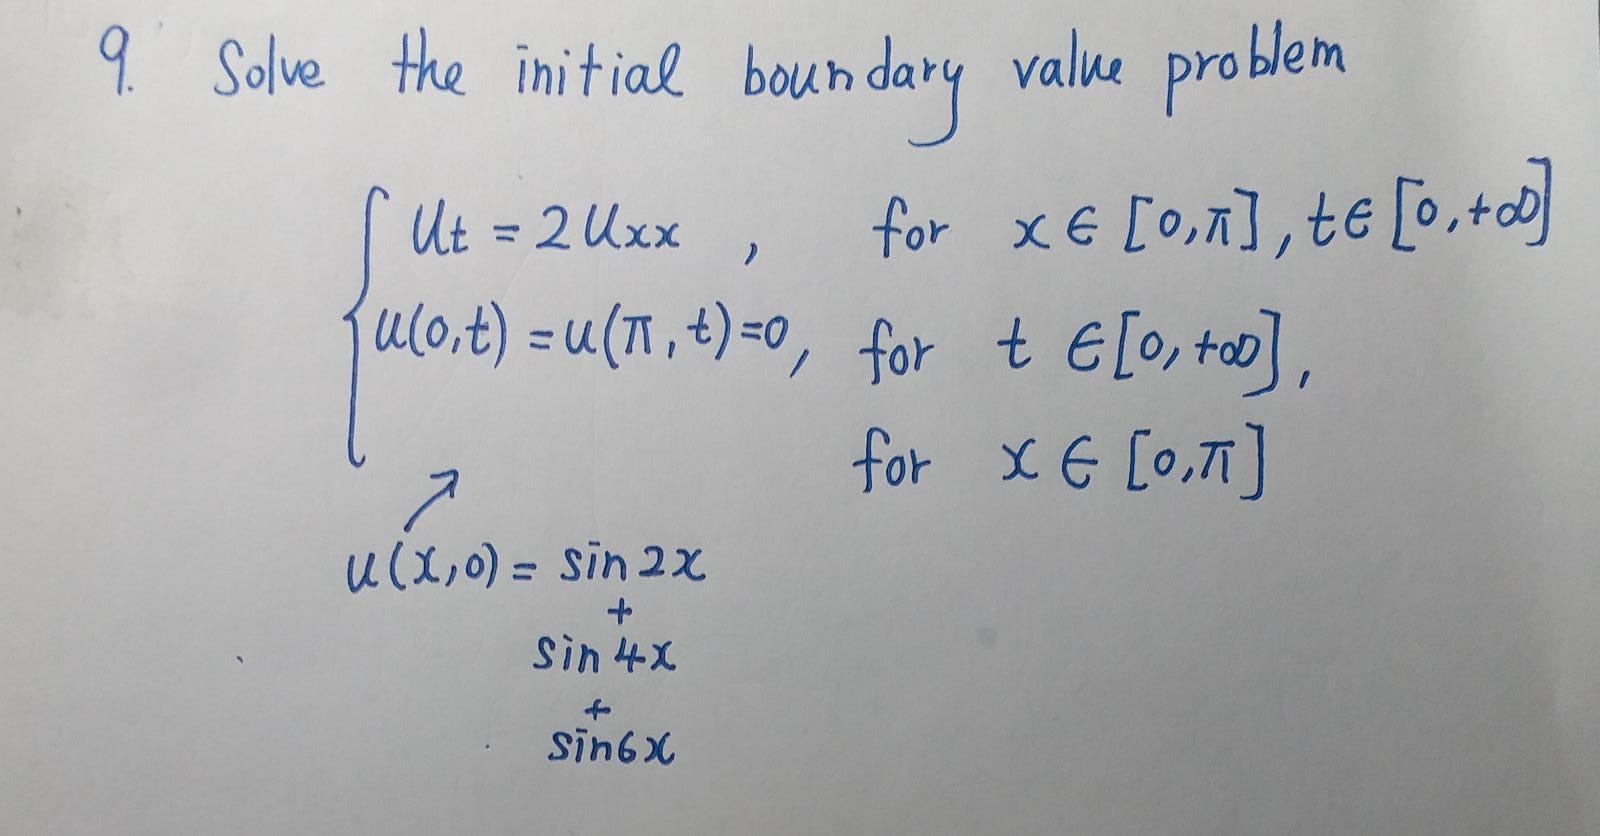 9. Solve the initial boundary value problem
Ut = 2Uxx , for x ∈ [0,π], t∈ [0,+∞]
u(0,t) = u(π,t)=0, for t ∈[0,+∞],
for x ∈ [0,π]
↗
u(x,0) = sin 2x
+
sin 4x
+
sin6x